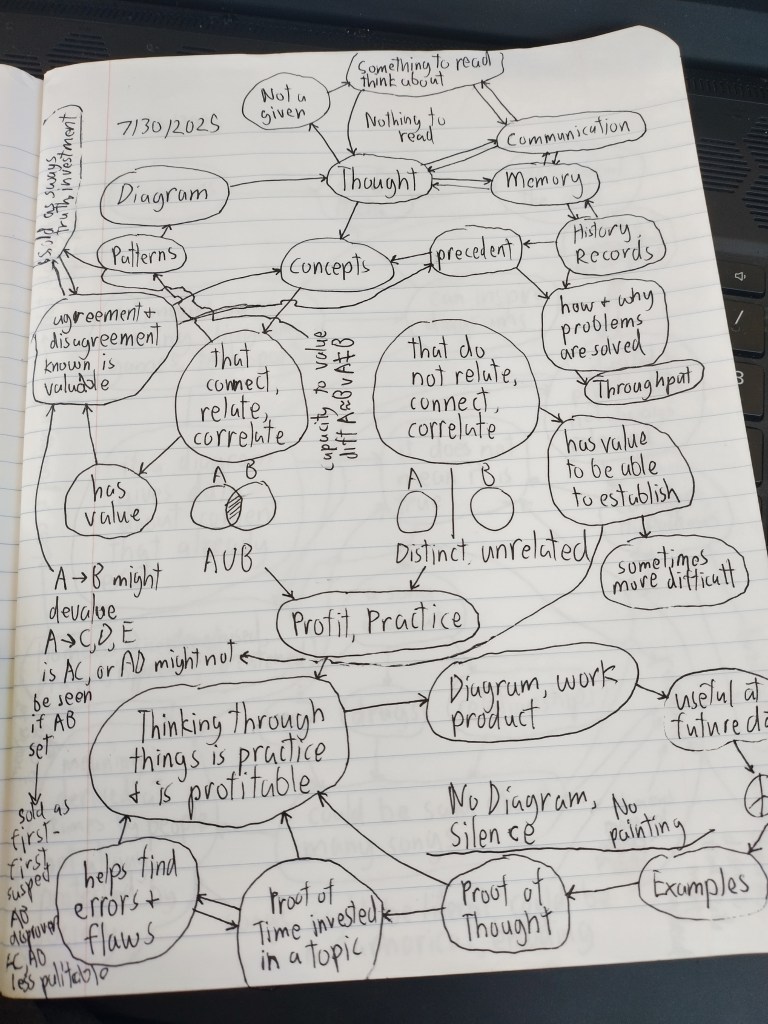 Something to read
think about
Not a
given
7/30/2025
Nothing to
read
Communication
Diagram
Thought
Memory
sold as
truth, investment
Patterns
Concepts
precedent
History,
Records
agreement +
disagreement
known is
valuable
how + why
problems
are solved
that
connect,
relate,
correlate
capacity to value
diff
that do
not relate,
connect,
correlate
Throughput
has
value
A B
A∪B
A B
Distinct, unrelated
has value
to be able
to establish
sometimes
more difficult
A → B might
devalue
A → C, D, E
is AC, or AD might not
be seen
if AB
set
sold as
first-
first
AB
AC, AD
less
Profit, Practice
Thinking through
things is practice
+ is profitable
Diagram, work
product
useful at
future
No Diagram,
Silence
No
painting
helps find
errors +
flaws
Proof of
Time invested
in a topic
Proof of
Thought
Examples